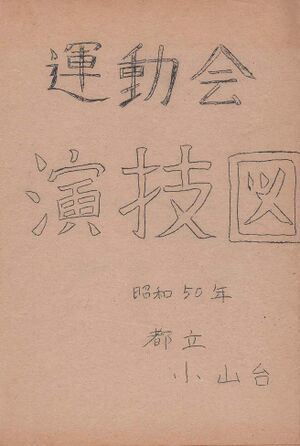 運動会
演技図
昭和50年
都立
小山台